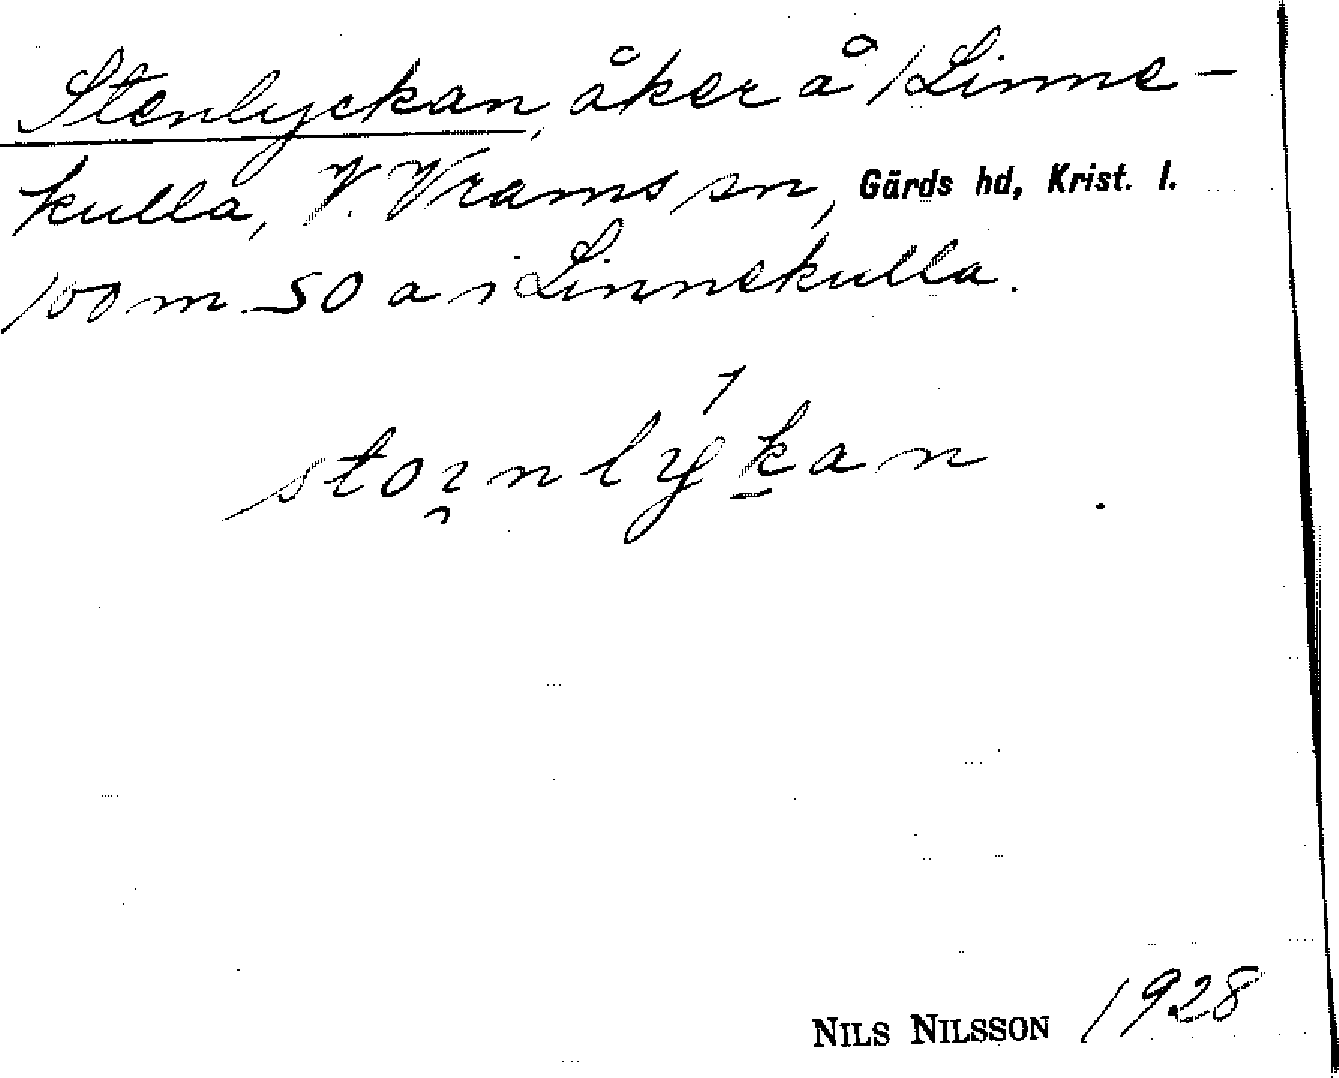 Stenlyckan, åker å 1 Linne-
kulla, V. Vrams sn, Gärds hd, Krist. l.
100 m SO om Linnekulla.
NILS NILSSON 1928